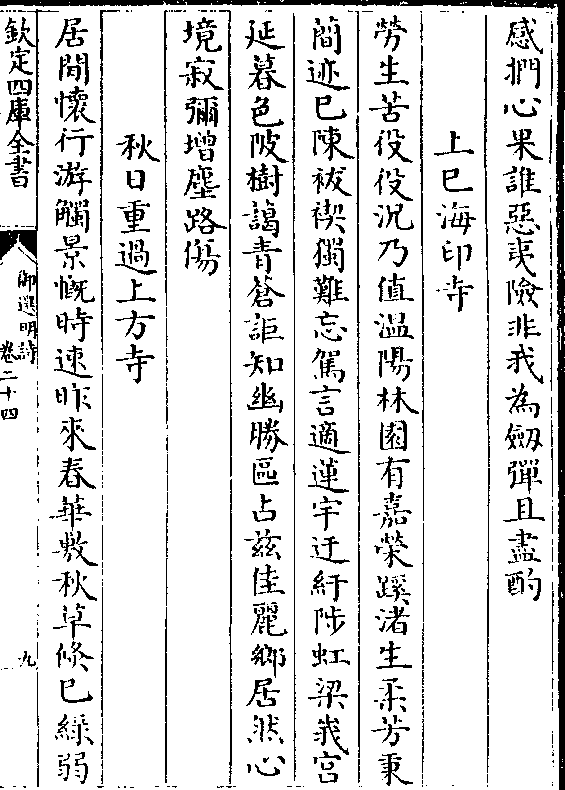 感捫心果誰惡夷險非我為劒彈且盡酌
上巳海印寺
勞生苦役役況乃值溫陽林園有嘉榮蹊渚生柔芳秉
蕳迹已陳祓禊獨難忘駕言適蓮宇迂紆陟虹梁峩宫
延暮色陂樹藹青蒼詎知幽勝區占兹佳麗鄉居然心
境寂彌增塵路傷
秋日重過上方寺
居閒懷行游觸景慨時速昨來春華敷秋草倐已緑弱
欽定四庫全書
御選明詩
卷二十四
九